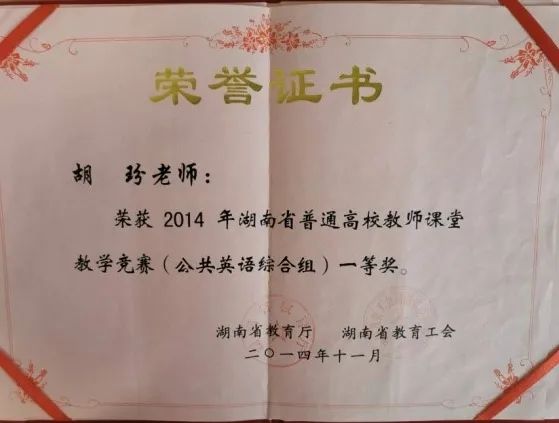 荣誉证书
胡 玢老师：
荣获 2014 年湖南省普通高校教师课堂
教学竞赛（公共英语综合组）一等奖。
湖南省教育厅 湖南省教育工会
二〇一四年十一月